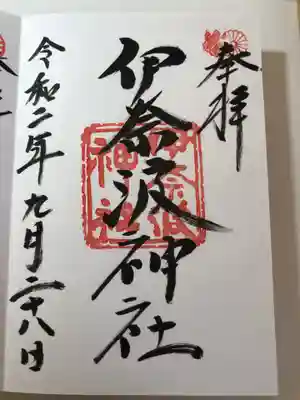 奉拝
伊奈波神社
伊奈波
神社
令和二年九月二十八日